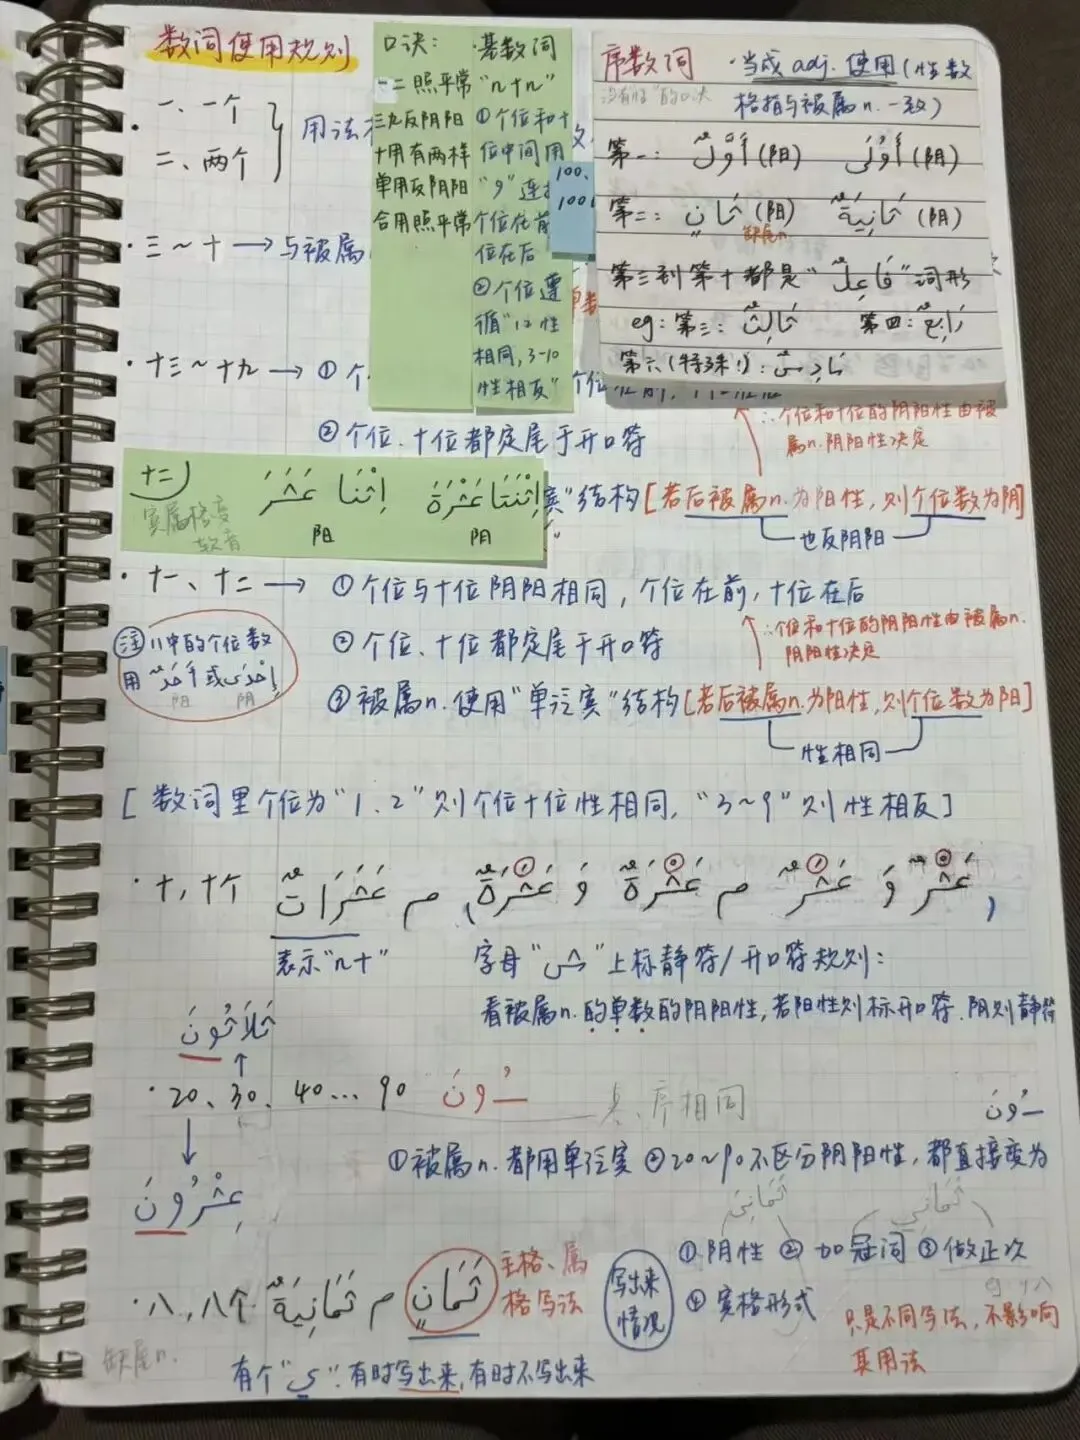 数词使用规则
一、一个
二、两个
用法
口诀：
一二照平常
三九反阴阳
十用有两样
单用反阴阳
合用照平常
·基数词
"n+n"
①个位和十
位中间用
"و"连
个位在前
位在后
②个位遵
循"12性
相同，3-10
性相反"
100、
100
序数词 ·当成adj.使用（性数
格指与被属n.一致）
第一：أَوَّلُ（阳） أُولَى（阴）
第二：ثَانٍ（阳） ثَانِيَةٌ（阴）
缺尾n
第三到第十都是"فَاعِلٌ"词形
eg：第三：ثَالِثٌ 第四：رَابِعٌ
第六（特殊！）：سَادِسٌ
·三～十 → 与被属
·十三～十九 → ①个
②个位、十位都定尾于开口符
∴个位和十位的阴阳性由被
属n.阴阳性决定
宾"结构[若后被属n.为阳性，则个位数为阴]
也反阴阳
十二
宾属格变
软音
اِثْنَا عَشَرَ اِثْنَتَا عَشْرَةَ
阳 阴
·十一、十二 → ①个位与十位阴阳相同，个位在前，十位在后
②个位、十位都定尾于开口符
∴个位和十位的阴阳性由被属n.
阴阳性决定
③被属n.使用"单泛宾"结构[若后被属n.为阳性，则个位数为阳]
性相同
注 11中的个位数
用أَحَدٌ或إِحْدَى
阳 阴
[数词里个位为"1、2"则个位十位性相同，"3～9"则性相反]
·十，十个 عَشْرٌ وَ عَشَرٌ م عَشْرَةٌ وَ عَشَرَةٌ م عَشَرَاتٌ
表示"n十" 字母"ش"上标静符/开口符规则：
看被属n.的单数的阴阳性，若阳性则标开口符、阴则静符
ثَلَاثُونَ
·20、30、40…90 ـُونَ 序相同
ـُونَ
①被属n.都用单泛宾 ②20～90不区分阴阳性，都直接变为
عِشْرُونَ
ثَمَانِيَ ثَمَانِي
·八，八个 ثَمَانِيَةٌ م ثَمَانٍ 主格、属
格写法
写出来
情况
①阴性 ②加冠词 ③做正次
④宾格形式
只是不同写法，不影响
其用法
缺尾n.
有个"ي"有时写出来，有时不写出来